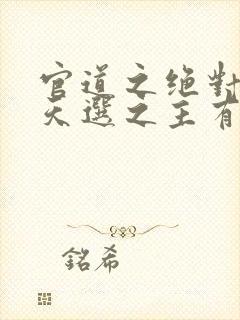 官道之绝對
天選之王有
銘希